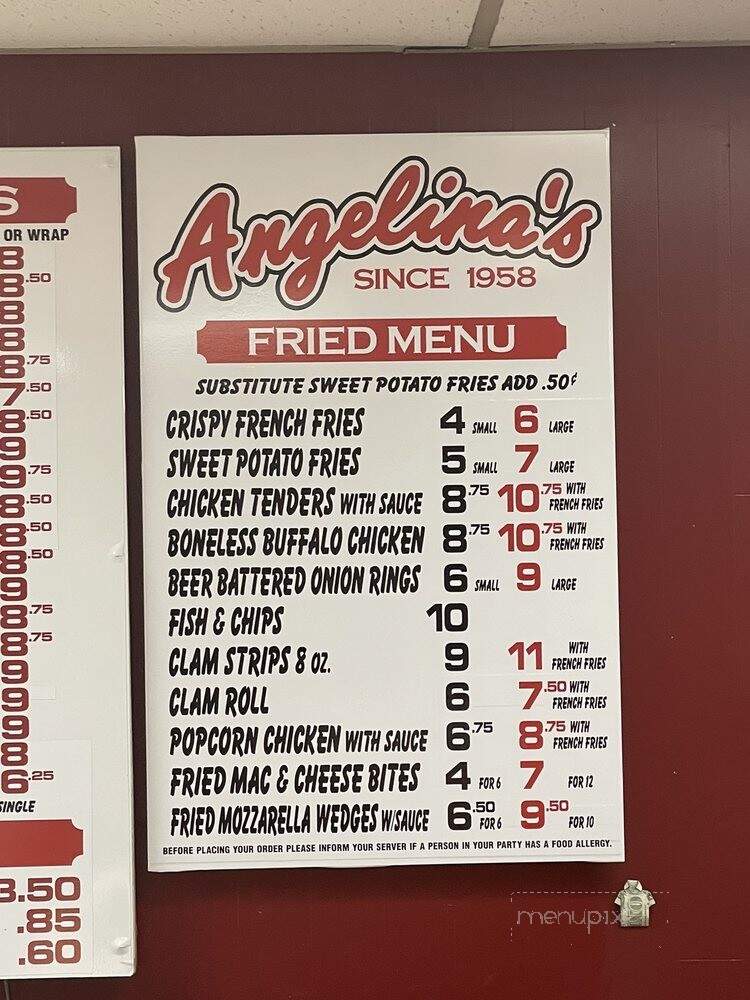 S
OR WRAP
8
8.50
8
8
8.75
7.50
8.50
9
9.75
8.50
8.50
8.50
9
8.75
8.75
9
9
9
8
6.25
SINGLE
3.50
.85
.60
Angelina's
SINCE 1958
FRIED MENU
SUBSTITUTE SWEET POTATO FRIES ADD .50¢
CRISPY FRENCH FRIES 4 SMALL 6 LARGE
SWEET POTATO FRIES 5 SMALL 7 LARGE
CHICKEN TENDERS WITH SAUCE 8.75 10.75 WITH FRENCH FRIES
BONELESS BUFFALO CHICKEN 8.75 10.75 WITH FRENCH FRIES
BEER BATTERED ONION RINGS 6 SMALL 9 LARGE
FISH & CHIPS 10
CLAM STRIPS 8 OZ. 9 11 WITH FRENCH FRIES
CLAM ROLL 6 7.50 WITH FRENCH FRIES
POPCORN CHICKEN WITH SAUCE 6.75 8.75 WITH FRENCH FRIES
FRIED MAC & CHEESE BITES 4 FOR 6 7 FOR 12
FRIED MOZZARELLA WEDGES W/SAUCE 6.50 FOR 6 9.50 FOR 10
BEFORE PLACING YOUR ORDER PLEASE INFORM YOUR SERVER IF A PERSON IN YOUR PARTY HAS A FOOD ALLERGY.
menupix